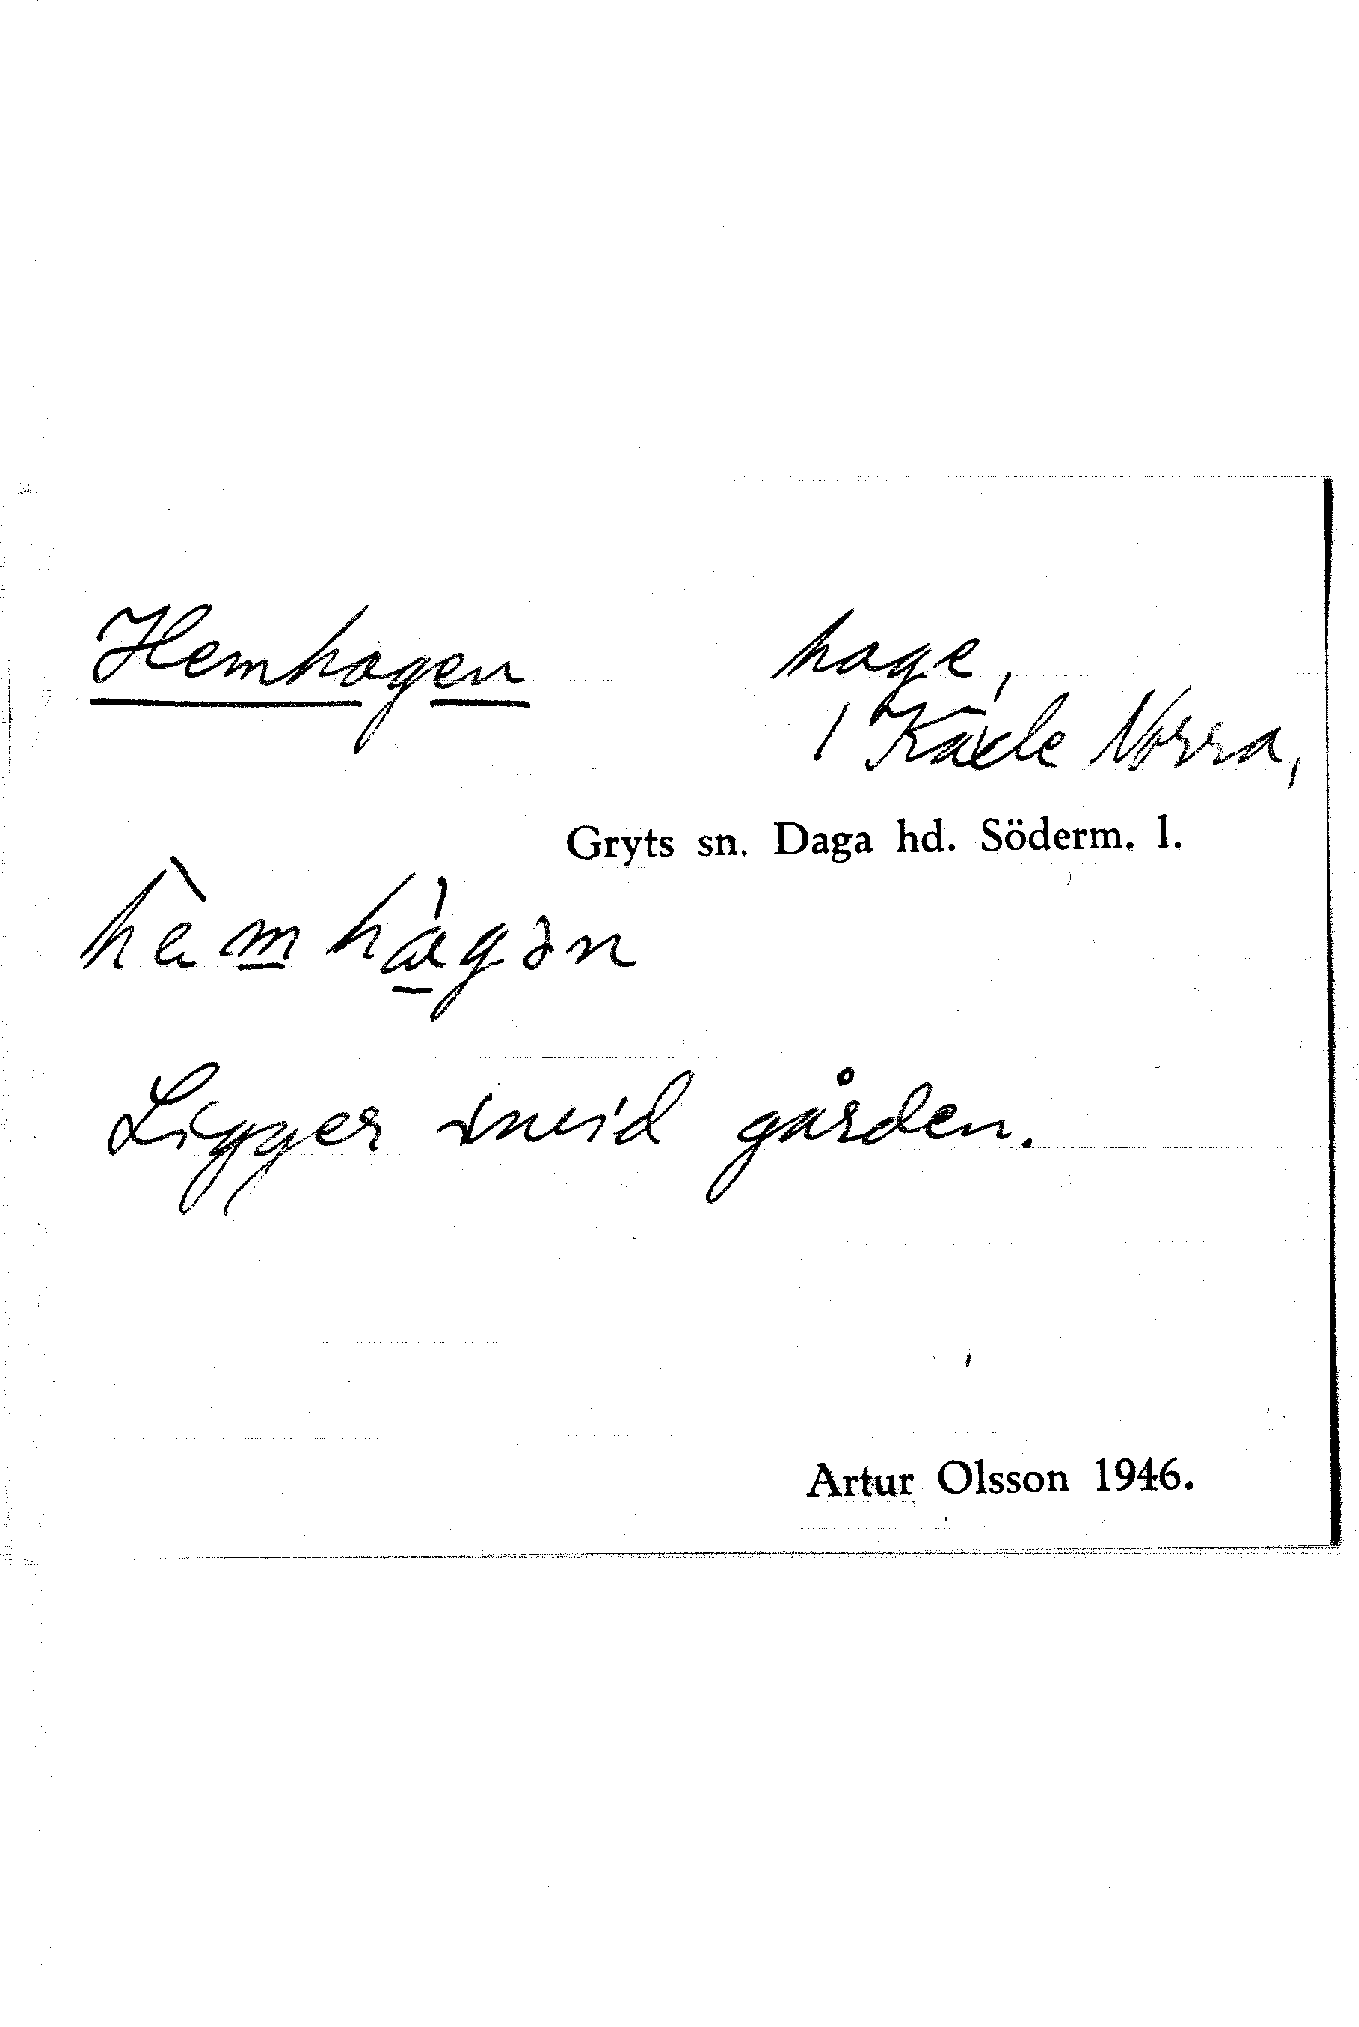 Hemhagen hage,
1 Käxle Norra,
Gryts sn. Daga hd. Söderm. l.
hèmhàgən
Ligger invid gården.
Artur Olsson 1946.